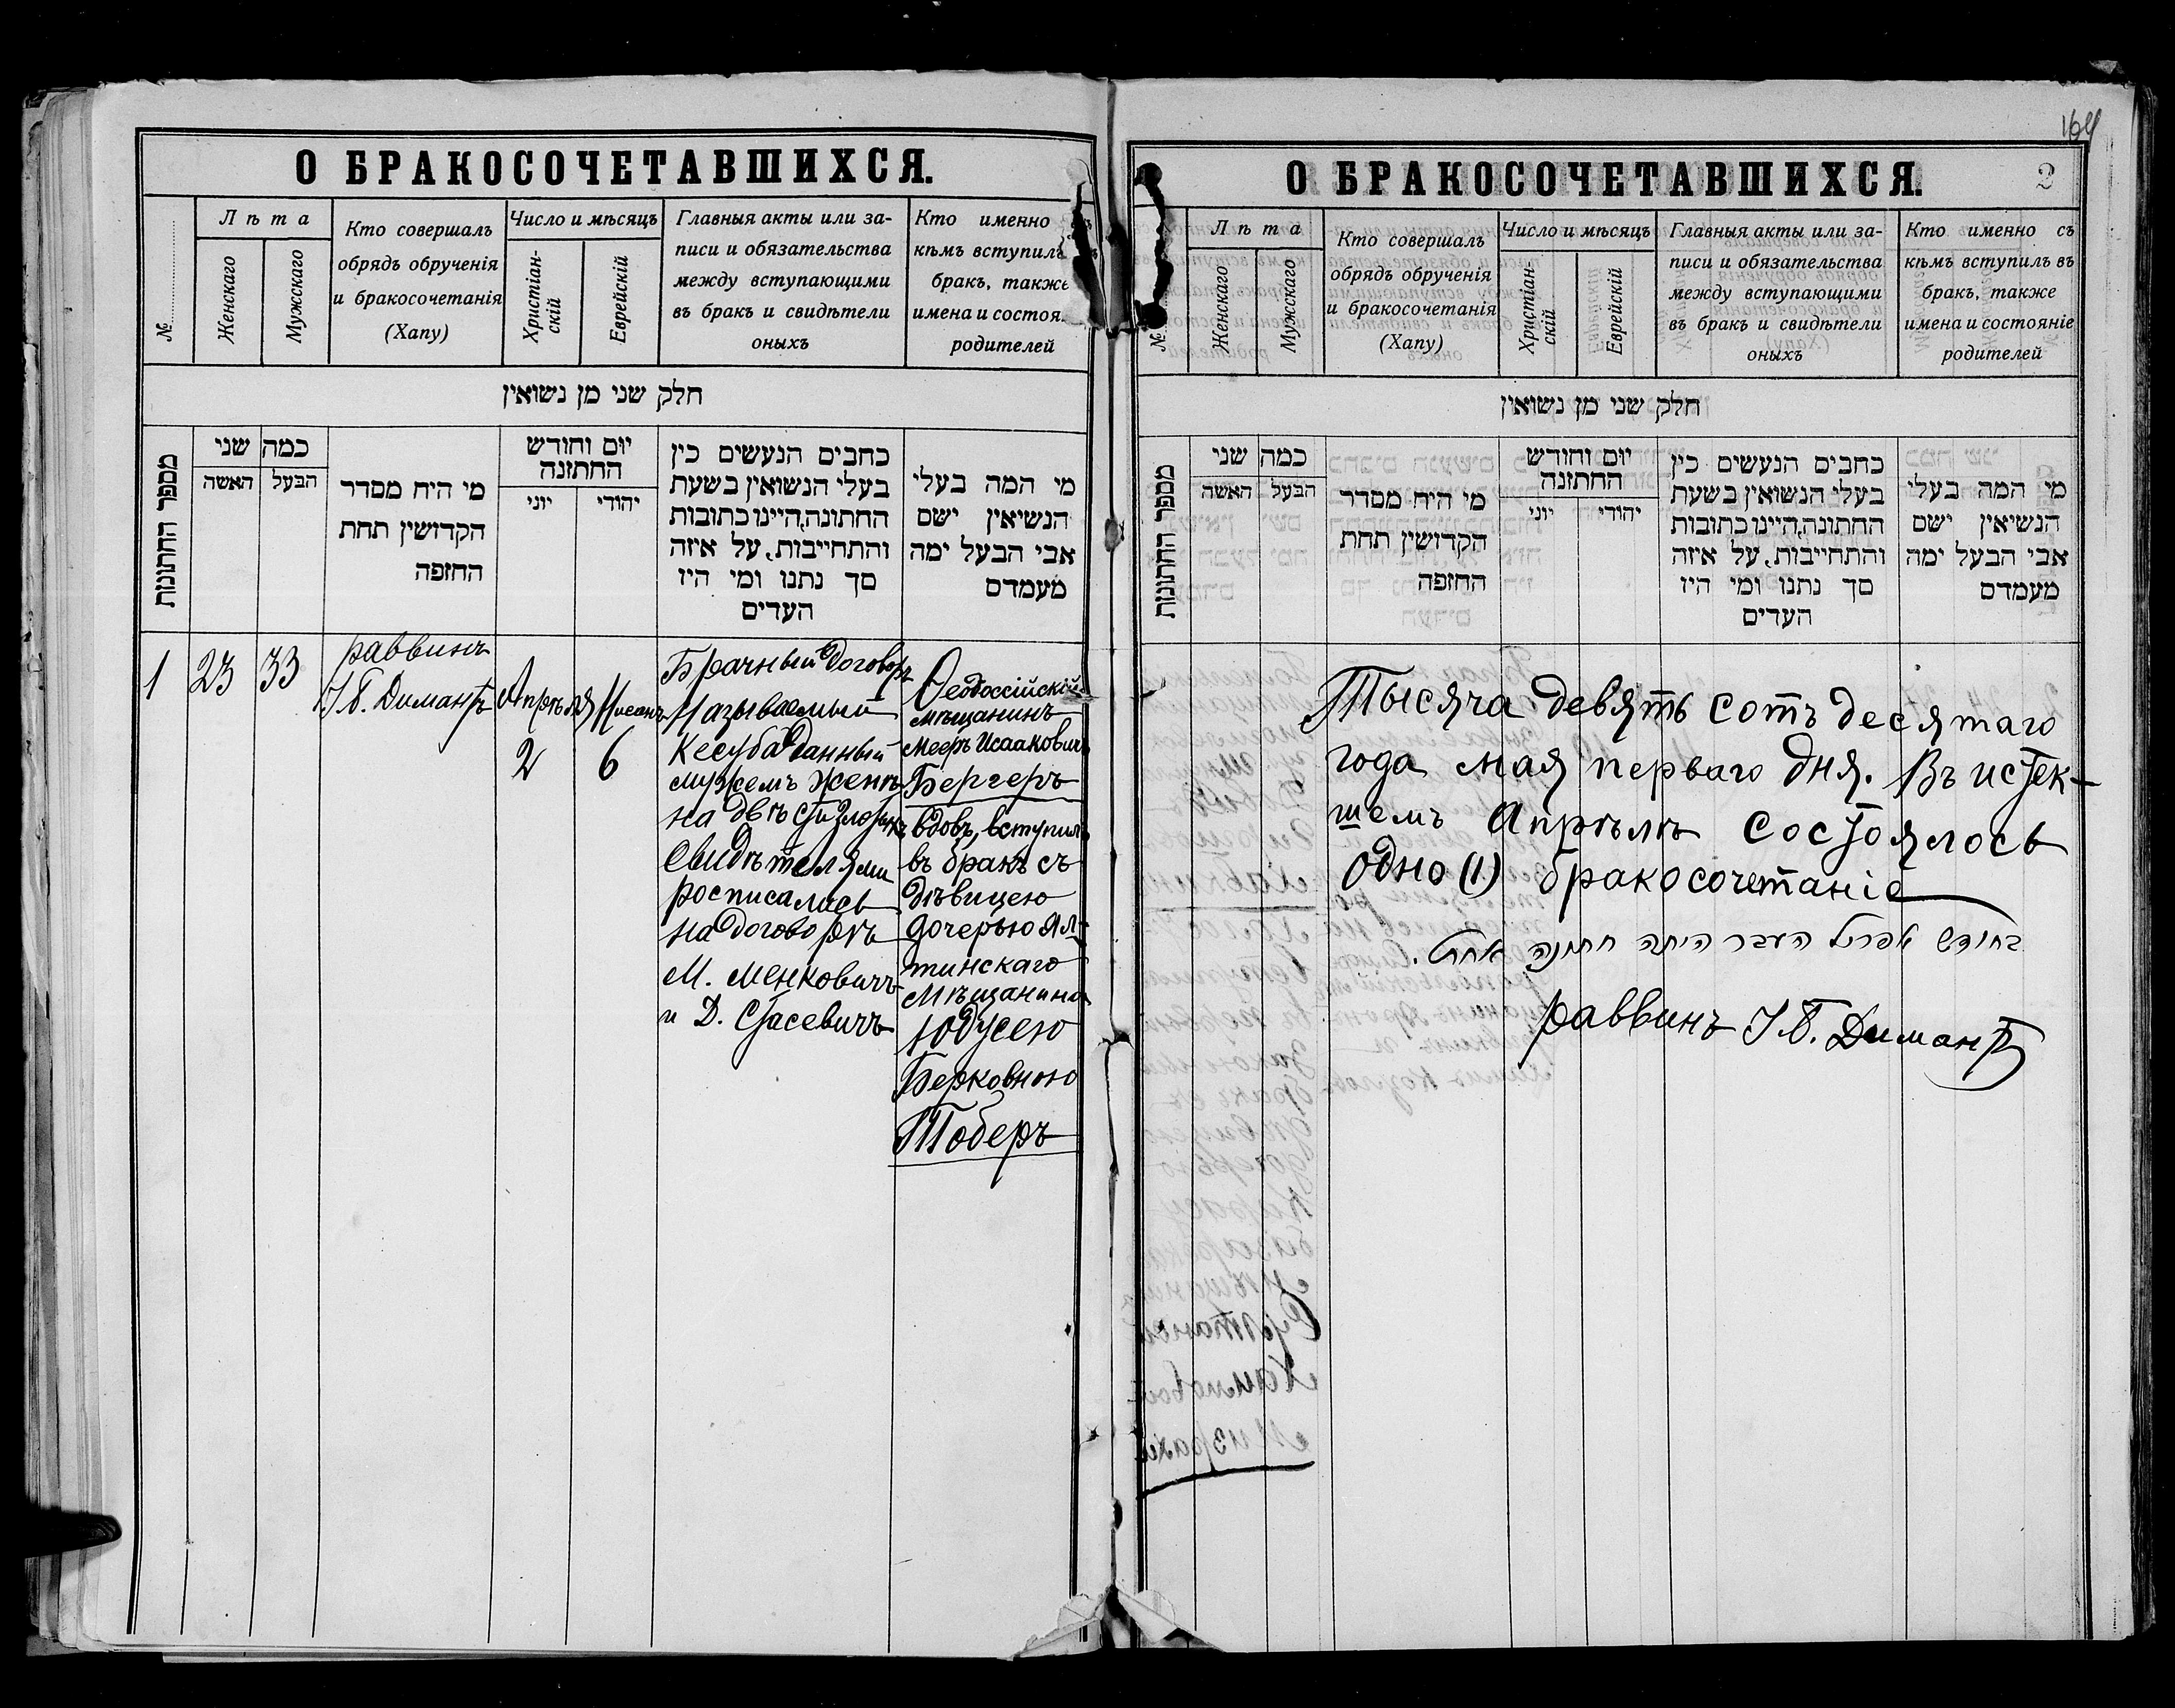 О БРАКОСОЧЕТАВШИХСЯ.
№
Лѣта
Женскаго
Мужскаго
Кто совершалъ
обрядъ обрученія
и бракосочетанія
(Хапу)
Число и мѣсяцъ
Христіан-
скій
Еврейскій
Главныя акты или за-
писи и обязательства
между вступающими
въ бракъ и свидѣтели
оныхъ
Кто именно
кѣмъ вступилъ
бракъ, также
имена и состоя
родителей
חלק שני מן נשואין
מספר החתונות
כמה שני
האשה
הבעל
מי היח מסדר
הקדושין תחת
החזפה
יום וחודש
החתזנה
יוני
יהודי
כחבים הנעשים כין
בעלי הנשואין בשעת
החתונה,היינו כתובות
והתחייבות, על איזה
סך נתנו ומי היז
העדים
מי המה בעלי
הנשיאין ישם
אבי הבעל ימה
מעמדם
1
23
33
раввинъ
І. Б. Димантъ
Апрѣля
2
Нисанъ
6
Брачный договоръ
Называемый
Кесуба данный
мужемъ женѣ
на двѣсти злотыхъ
Свидѣтелями
росписались
на договорѣ
М. Менковичъ
и Д. Стасевичъ
Ѳеодоссійскій
мѣщанинъ
Мееръ Исааковичъ
Бергеръ
вдовъ, вступилъ
въ бракъ съ
дѣвицею
дочерью Ял-
тинскаго
мѣщанина
Юдусею
Берковною
Тоберъ
164
О БРАКОСОЧЕТАВШИХСЯ.
2
№
Лѣта
Женскаго
Мужскаго
Кто совершалъ
обрядъ обрученія
и бракосочетанія
(Хапу)
Число и мѣсяцъ
Христіан-
скій
Еврейскій
Главныя акты или за-
писи и обязательства
между вступающими
въ бракъ и свидѣтели
оныхъ
Кто именно съ
кѣмъ вступилъ въ
бракъ, также
имена и состояніе
родителей
חלק שני מן נשואין
מספר החתונות
כמה שני
האשה
הבעל
מי היח מסדר
הקדושין תחת
החזפה
יום וחודש
החתזנה
יוני
יהודי
כחבים הנעשים כין
בעלי הנשואין בשעת
החתונה,היינו כתובות
והתחייבות, על איזה
סך נתנו ומי היז
העדים
מי המה בעלי
הנשיאין ישם
אבי הבעל ימה
מעמדם
Тысяча девять сотъ десятаго
года мая перваго дня. Въ истек-
шемъ Апрѣлѣ состоялось
одно (1) бракосочетаніе
בחודש אפריל העבר היתה חתונה אחת.
раввинъ І. Б. Димантъ